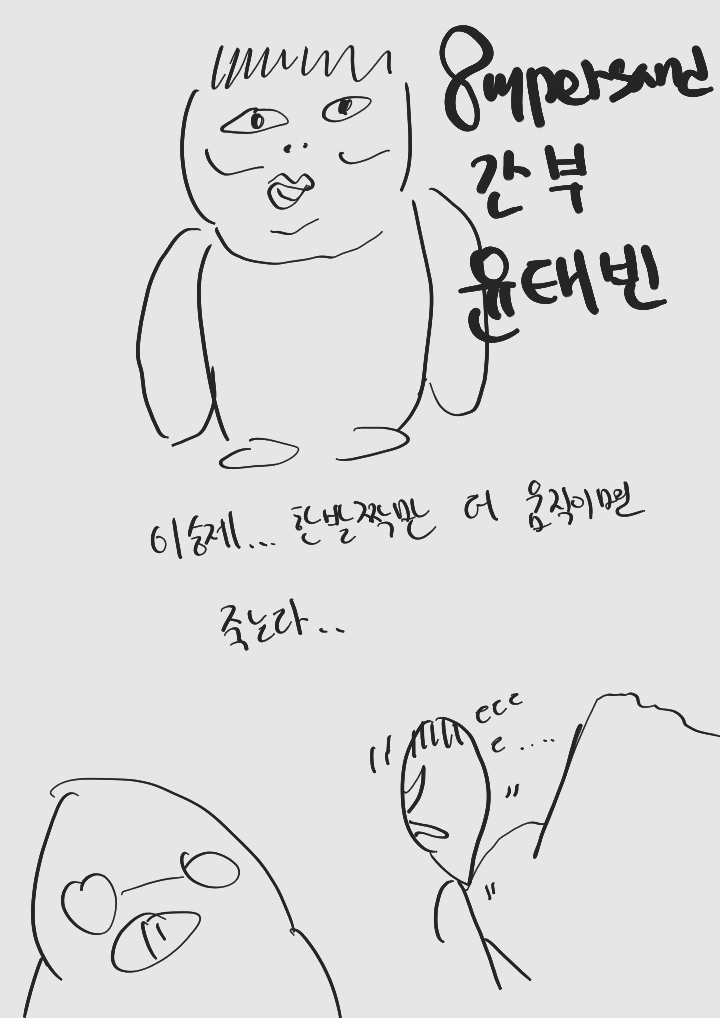 8mpersand
간부
윤태빈
이승제... 한발짝만 더 움직이면
죽는다..
ㄷㄷㄷ
ㄷ....